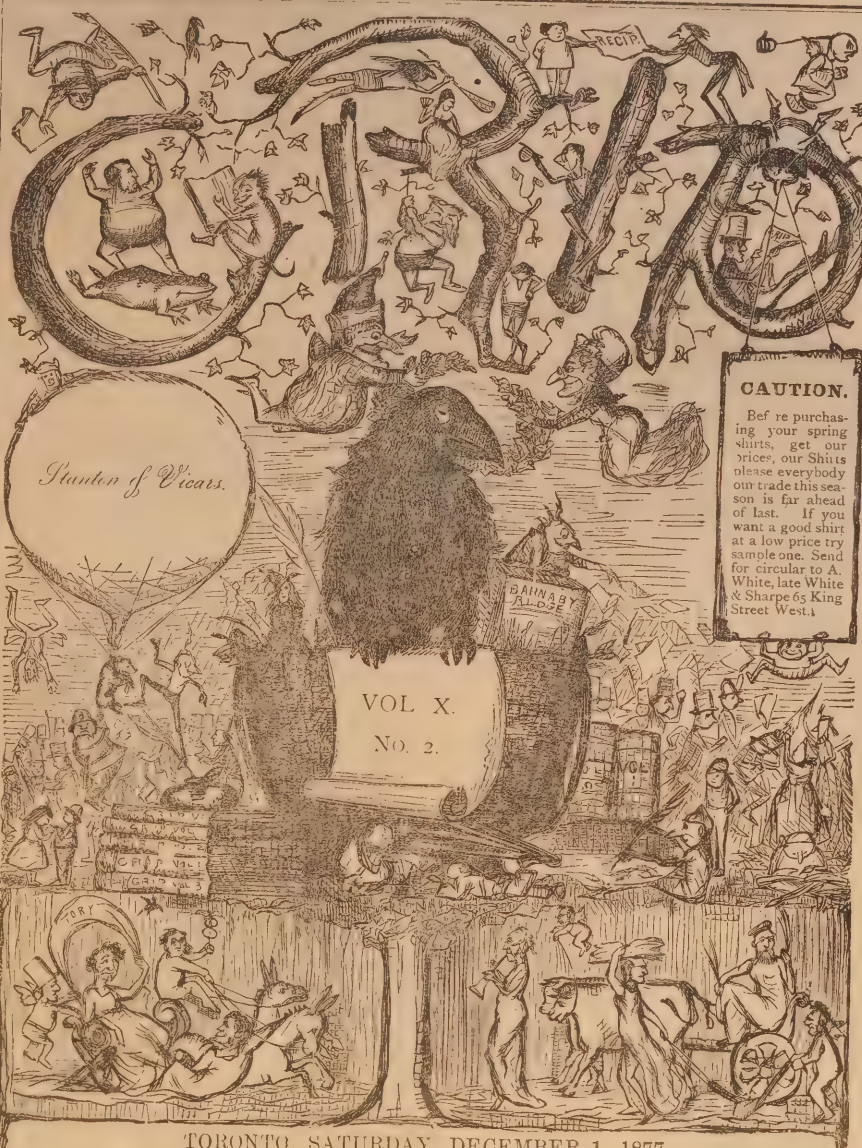 GRIP
RECIP.
CAUTION.
Bef re purchas-
ing your spring
shirts, get our
prices, our Shirts
please everybody
our trade this sea-
son is far ahead
of last. If you
want a good shirt
at a low price try
sample one. Send
for circular to A.
White, late White
& Sharpe 65 King
Street West.
Stanton & Vicars.
BARNABY
RUDGE
VOL X.
No. 2.
GRIP VOL
GRIP VOL 3
TORY
TORONTO, SATURDAY, DECEMBER 1, 1877.